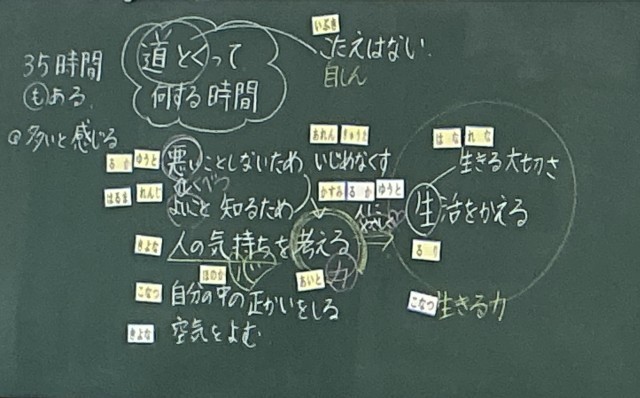 35時間
もある。
多いと感じる
道とくって
何する時間
いぶき
こたえはない。
自しん
るか ゆうと
悪いことしないため
あれん きゅうと
いじめなくす
くべつ
はるま れんじ
よいこと 知るため
かすみ るか ゆうと
人に
やさしく
はな れな
生きる大切さ
生活をかえる
るり
きよな
人の気持ちを考える
ほのか
心
あいと
力
こなつ
自分の中の正かいをしる
こなつ
生きる力
きよな
空気をよむ